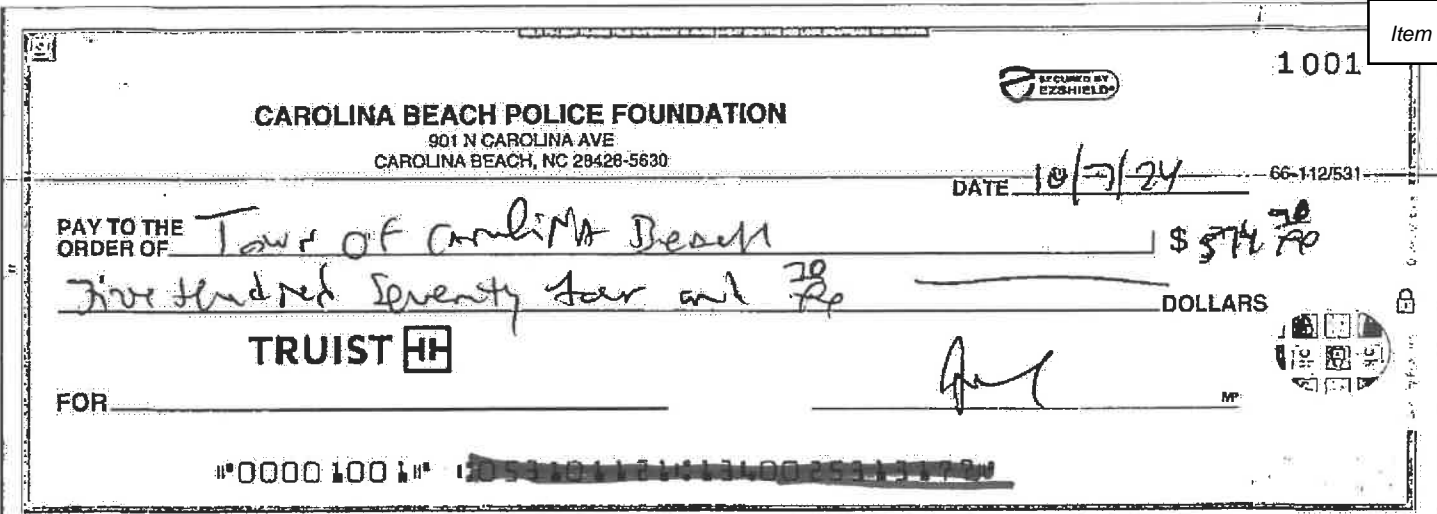 Item
1001
SECURED BY
EZSHIELD
CAROLINA BEACH POLICE FOUNDATION
901 N CAROLINA AVE
CAROLINA BEACH, NC 28428-5630
DATE 10/7/24 66-112/531
PAY TO THE
ORDER OF Town OF Carolina Beach $ 574 70/00
Five Hundred Seventy four and 70/00 DOLLARS
TRUIST
FOR
MP
⑈00001001⑈